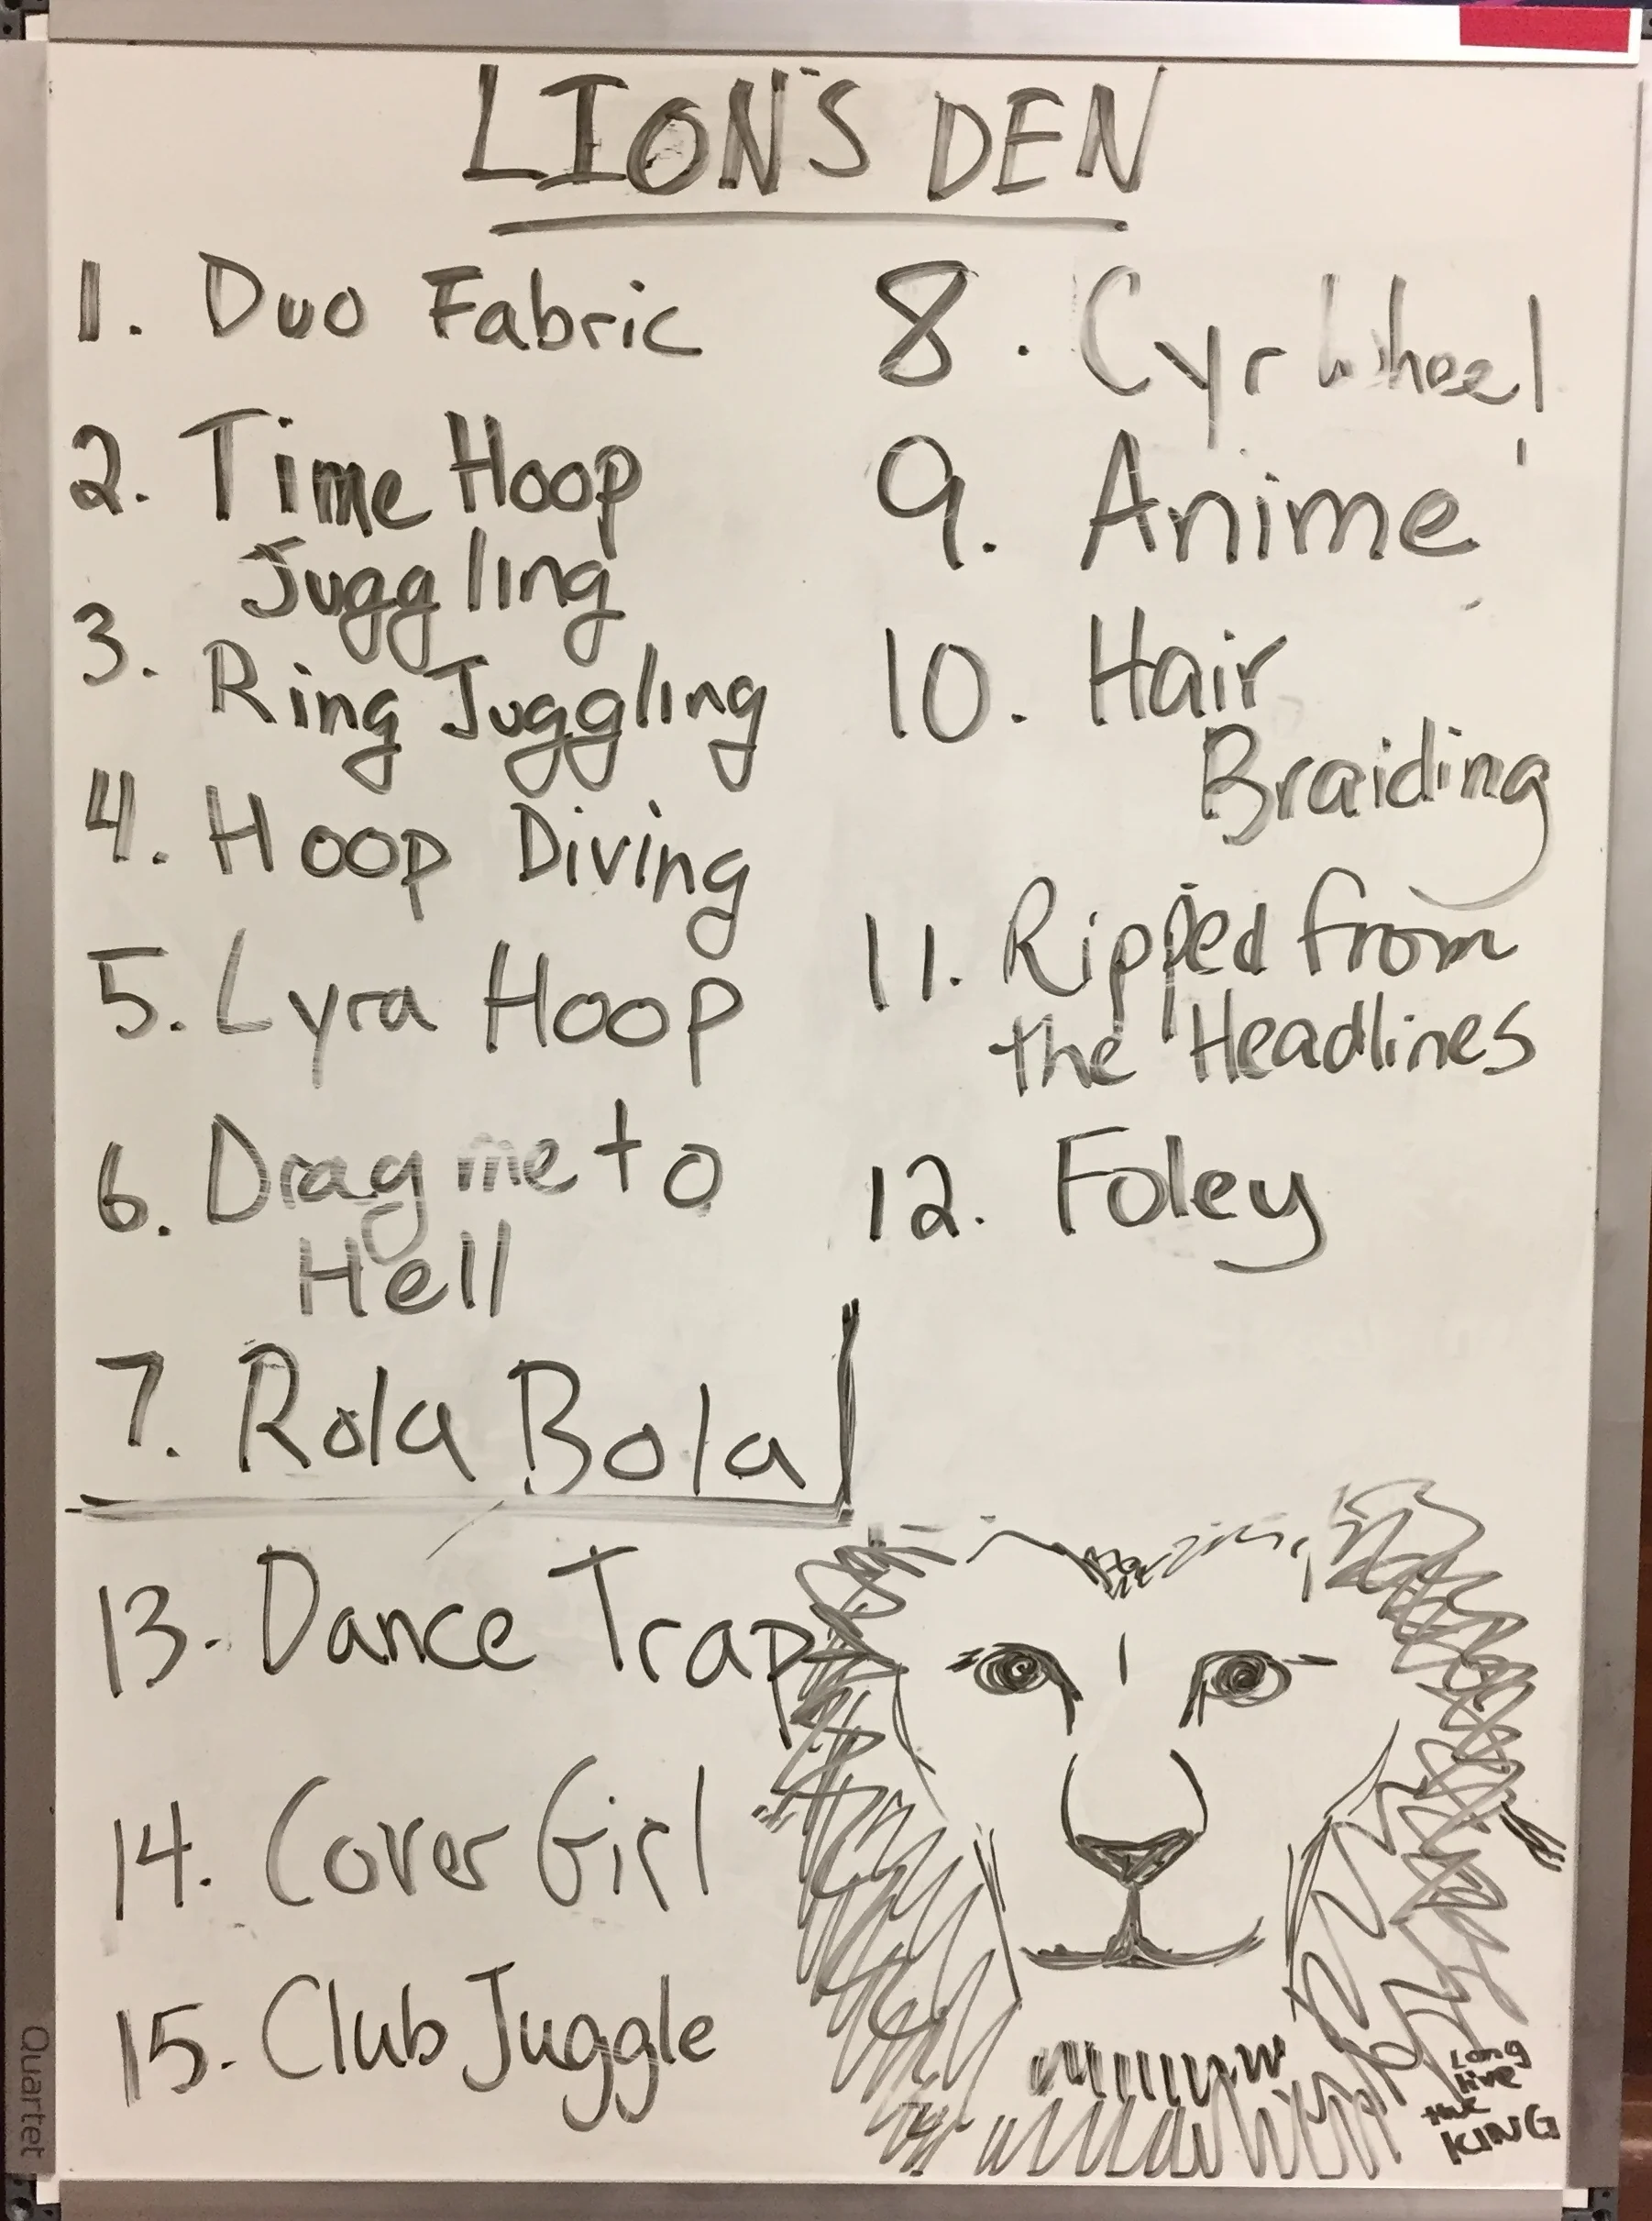 LION'S DEN
1. Duo Fabric
2. Time Hoop
Juggling
3. Ring Juggling
4. Hoop Diving
5. Lyra Hoop
6. Drag me to
Hell
7. Rola Bola
8. Cyr Wheel
9. Anime
10. Hair
Braiding
11. Ripped from
the Headlines
12. Foley
13. Dance Trap
14. Cover Girl
15. Club Juggle
Long
live
the
KING
Quartet